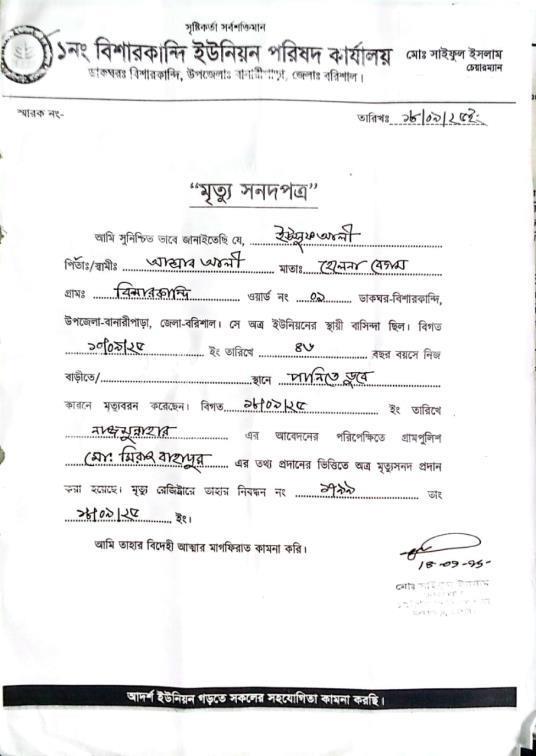 সৃষ্টিকর্তা সর্বশক্তিমান
১নং বিশারকান্দি ইউনিয়ন পরিষদ কার্যালয় মোঃ সাইফুল ইসলাম
চেয়ারম্যান
ডাকঘরঃ বিশারকান্দি, উপজেলাঃ বানারীপাড়া, জেলাঃ বরিশাল।
স্মারক নং-
তারিখঃ ১৮/০৯/২৫ইং
“মৃত্যু সনদপত্র”
আমি সুনিশ্চিত ভাবে জানাইতেছি যে, ইউসুফ আলী
পিতাঃ/স্বামীঃ আত্তাব আলী মাতাঃ হেলেনা বেগম
গ্রামঃ বিশারকান্দি ওয়ার্ড নং ০৯ ডাকঘর-বিশারকান্দি,
উপজেলা-বানারীপাড়া, জেলা-বরিশাল। সে অত্র ইউনিয়নের স্থায়ী বাসিন্দা ছিল। বিগত
১০/০৯/২৫ ইং তারিখে ৪৬ বছর বয়সে নিজ
বাড়ীতে/ স্থানে পানিতে ডুবে
কারনে মৃত্যুবরন করেছেন। বিগত ১৮/০৯/২৫ ইং তারিখে
নাজমুন্নাহার এর আবেদনের পরিপেক্ষিতে গ্রামপুলিশ
মোঃ মিরাজ বাহাদুর এর তথ্য প্রদানের ভিত্তিতে অত্র মৃত্যুসনদ প্রদান
করা হয়েছে। মৃত্যু রেজিষ্টারে তাহার নিবন্ধন নং তাং
১৮/০৯/২৫ ইং।
আমি তাহার বিদেহী আত্মার মাগফিরাত কামনা করি।
18-09-25-
মোঃ সাইফুল ইসলাম
আদর্শ ইউনিয়ন গড়তে সকলের সহযোগিতা কামনা করছি।